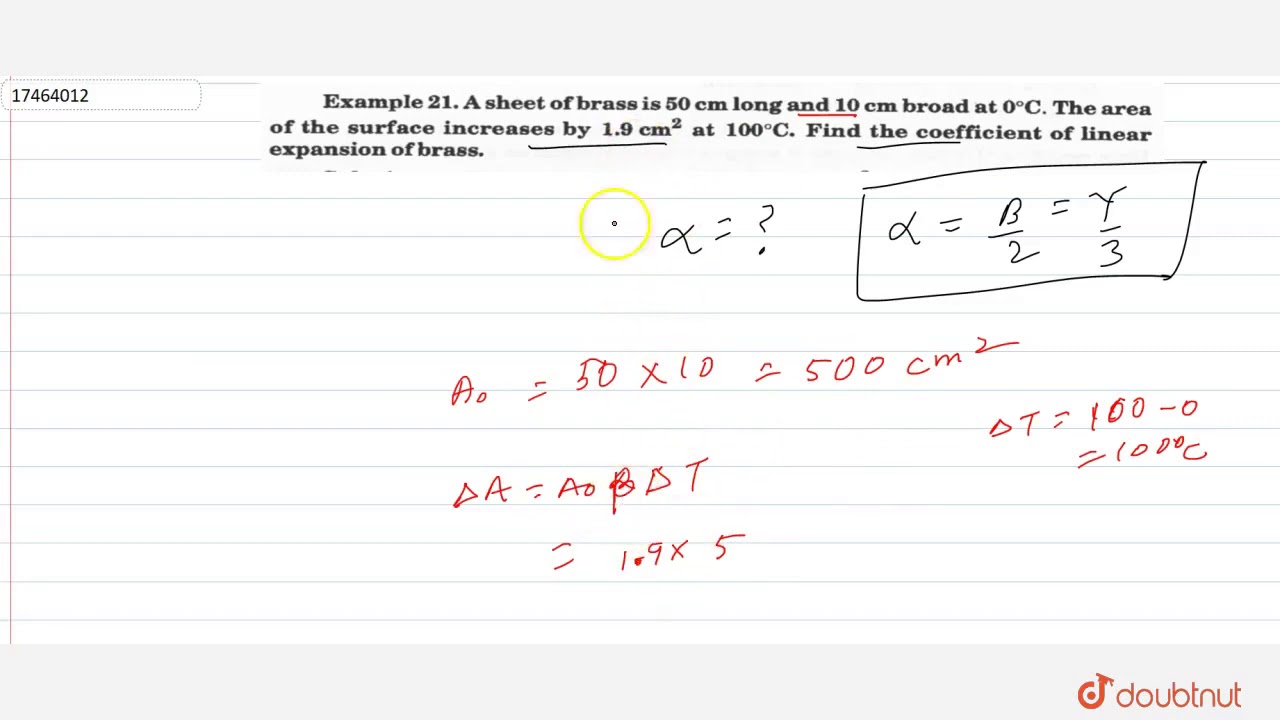 17464012
Example 21. A sheet of brass is 50 cm long and 10 cm broad at 0°C. The area
of the surface increases by 1.9 cm² at 100°C. Find the coefficient of linear
expansion of brass.
α = ?
α = β/2 = γ/3
A₀ = 50 × 10 = 500 cm²
ΔT = 100 - 0
= 100°C
ΔA = A₀ β Δ T
= 1.9 × 5
doubtnut